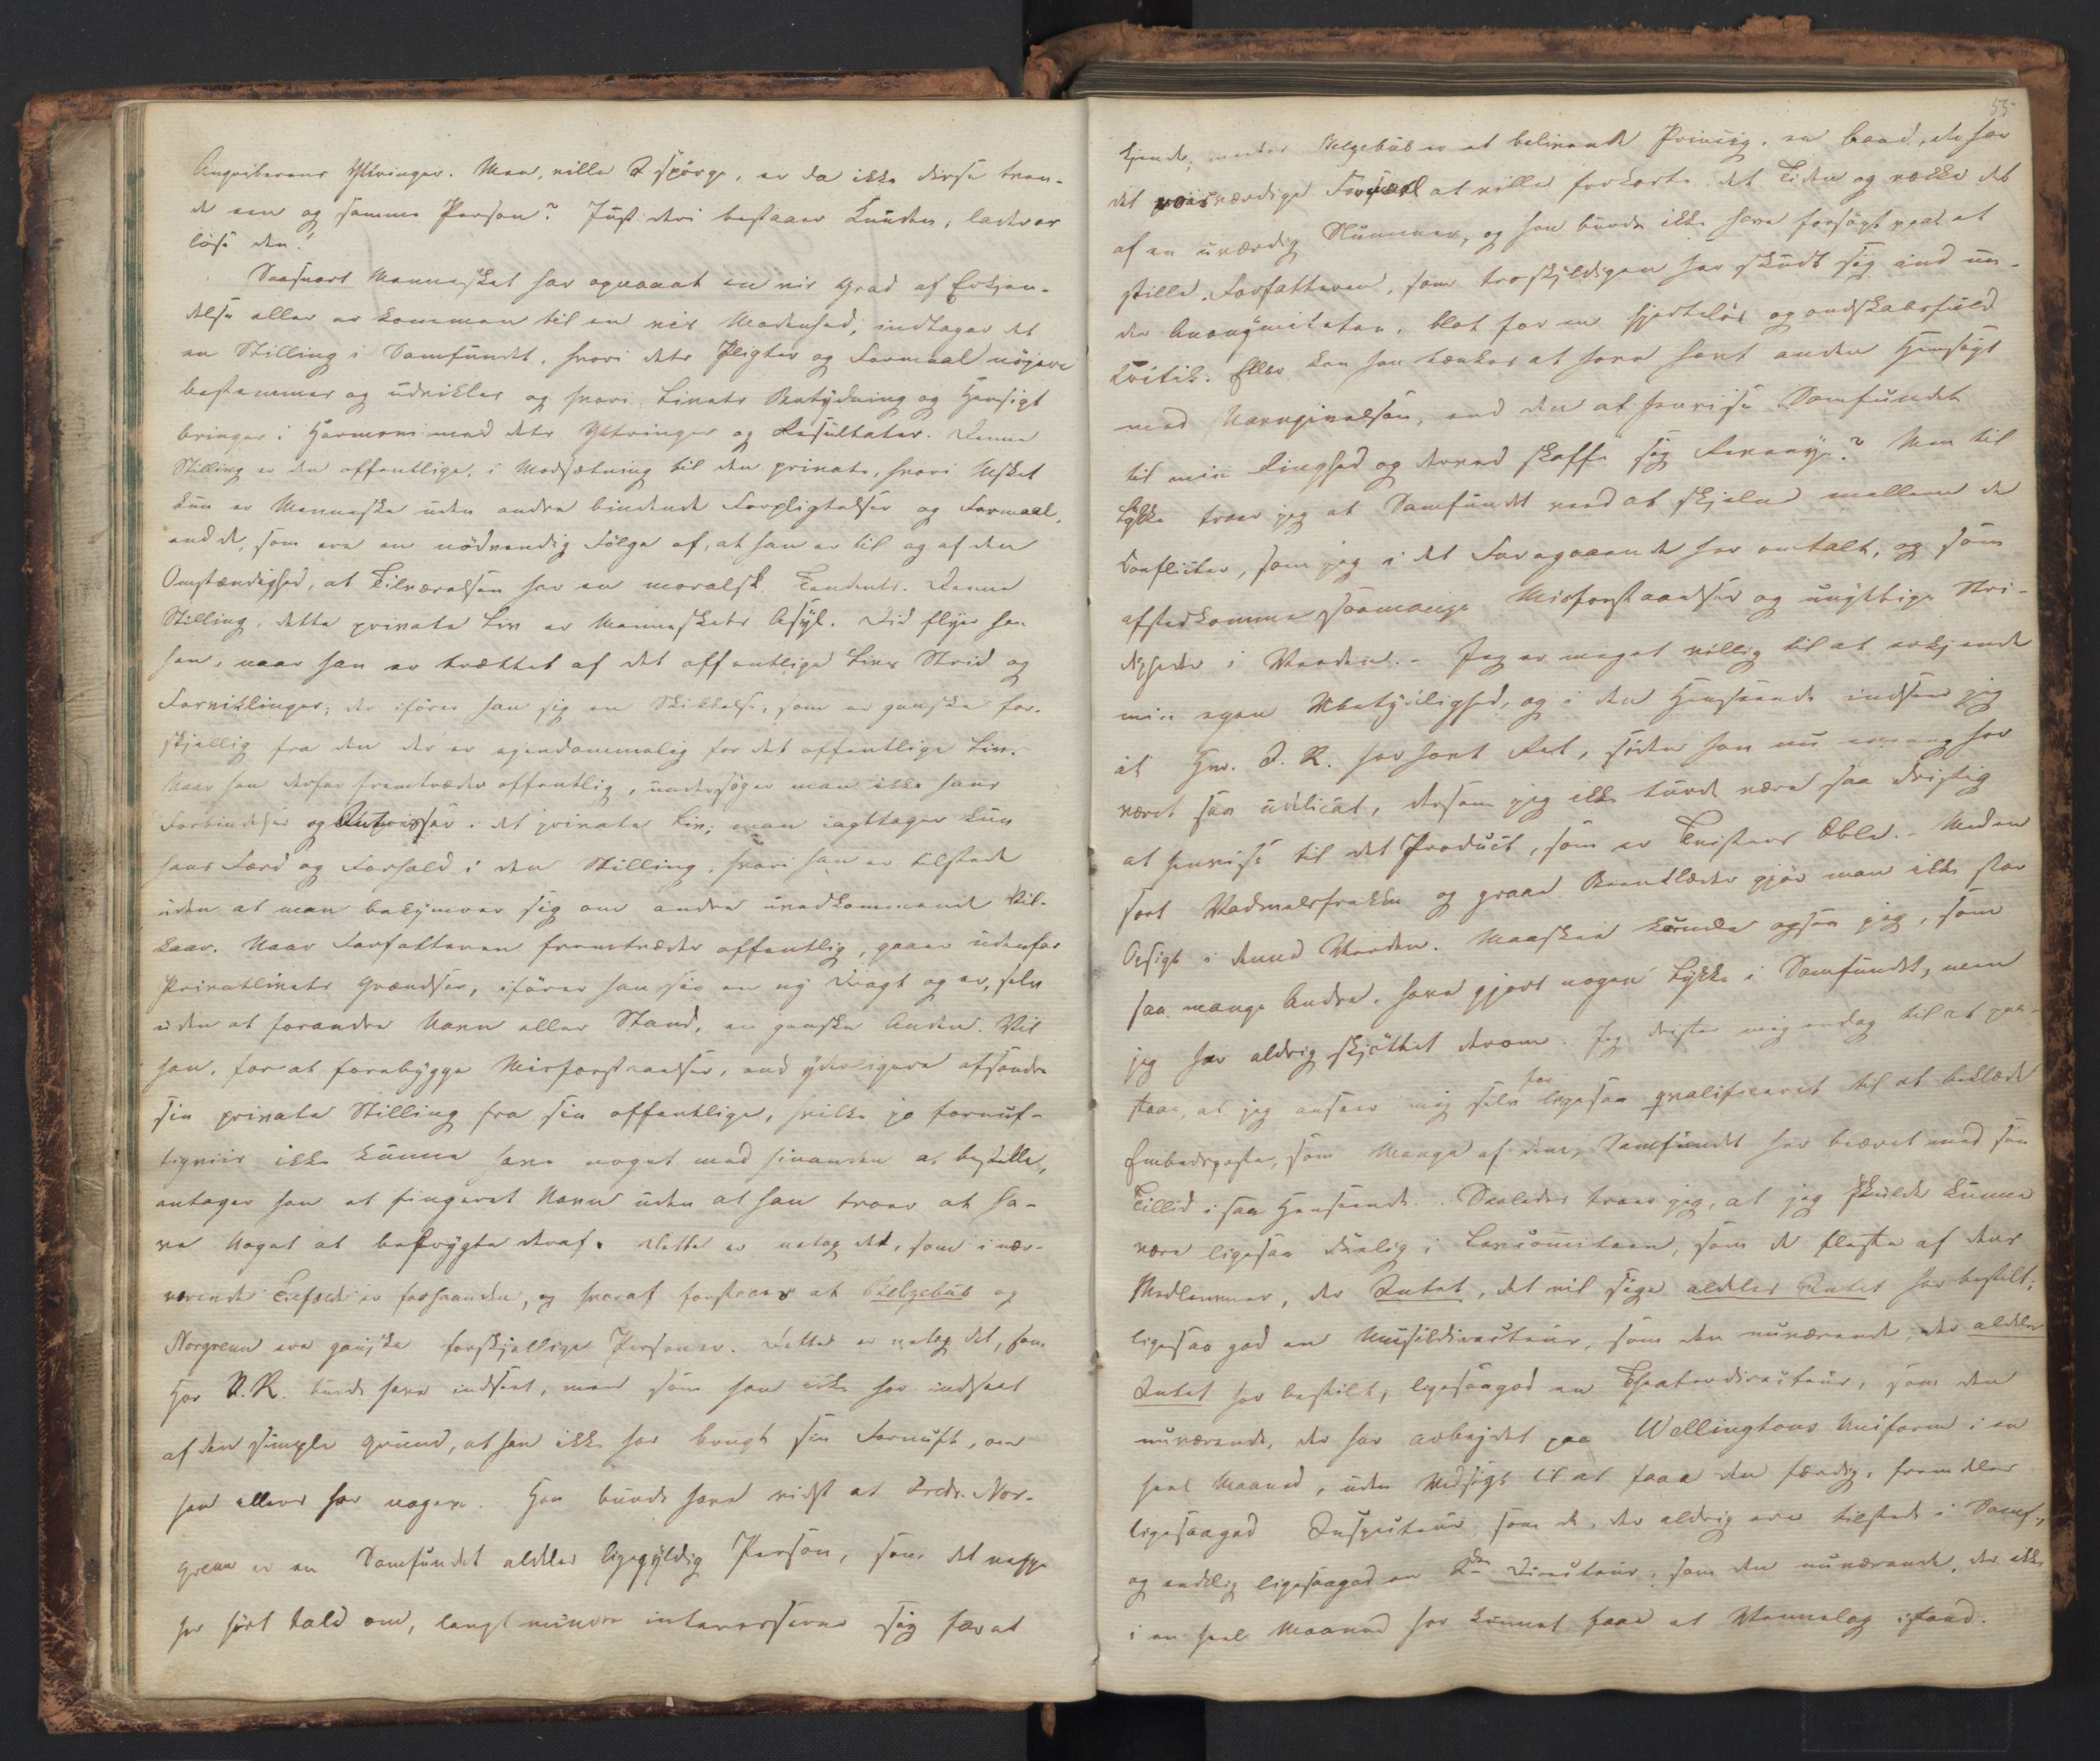 Angriberens Yttringer. Men, ville I spörge, er da ikke disse tven-
de een og samme Person? Just deri bestaaer Knuden, lad os
löse den!
Saasnart Mennesket har opnaaet en vis Grad af Erkjen-
delse eller er kommen til en vis Modenhed, indtager det
en Stilling i Samfundet, hvori dets Pligter og Formaal nöiere
bestemmes og udvikles og hvori Livets Betydning og Hensigt
bringes i Harmoni med dets Yttringer og Resultater. Denne
Stilling er den offentlige, i Modsætning til den private, hvori Msket
kun er Menneske uden andre bindende Forpligtelser og Formaal,
end de, som ere en nödvendig Fölge af, at han er til og af den
Omstændighed, at Tilværelsen har en moralsk Tendents. Denne
Stilling, dette private Liv er Menneskets Asyl. Did flyer han
hen, naar han er trættet af det offentlige Livs Strid og
Forviklinger; der iförer han sig en Skikkelse, som er ganske for-
skjellig fra den der er eiendommelig for det offentlige Liv.
Naar han derfor fremtræder offentlig, undersöger man ikke hans
Forbindelser og Interesser i det private Liv; man iagttager kun
hans Færd og Forhold i den Stilling, hvori han er tilstede
uden at man bekymrer sig om andre uvedkommende Vil-
kaar. Naar Forfatteren fremtræder offentlig, gaaer udenfor
Privatlivets Grændser, iförer han sig en ny Dragt og er, selv
uden at forandre Navn eller Stand, en ganske Anden. Vil
han, for at forebygge Misforstaaelser, end yderligere afsondre
sin private Stilling fra sin offentlige, hvilke jo fornuf-
tigviis ikke kunne have noget med hinanden at bestille,
antager han et fingeret Navn uden at han troer at ha-
ve Noget at befrygte deraf. Dette er netop det, som i nær-
værende Tilfælde er forhaanden, og hvoraf forstaaes at Belzebub og
Norgrenn ere ganske forskjellige Personer. Dette er netop det, som
Hr R. burde have indseet, men som han ikke har indseet
af den simple Grund, at han ikke har brugt sin Fornuft, om
han ellers har nogen. Han burde have vidst at Fredr. Nor-
grenn er en Samfundet aldeles ligegyldig Person, som det neppe
har hört tale om, langt mindre interesserer sig for at
55
kjende; medens Belzebub er et belivende Princip, en Aand, der har
det priisværdige Forsæt at ville forkorte det Tiden og vække det
af en uværdig Slummer, og han burde ikke have forsögt paa at
stille Forfatteren, som troskyldigen har skudt sig ind un-
der Anonymiteten, blot for en hjertelös og ondskabsfuld
Kritik. Eller kan han tænkes at have havt anden Hensigt
med Navngivelsen, end den at henvise Samfundet
til min Ringhed og derved skaffe sig Revange? Men til
Lykke troer jeg at Samfundet veed at skjelne mellem de
Conflicter, som jeg i det Foregaaende har omtalt, og som
afstedkomme saamange Misforstaaelser og unyttige Stri-
digheder i Verden. - Jeg er meget villig til at erkjende
min egen Ubetydelighed, og i den Henseende indseer jeg
at Hr. R. har havt Ret, siden han nu engang har
været saa udelicat, dersom jeg ikke turde være saa dristig
at henvise til det Product, som er Tvistens Æble. - Med en
sort Vadmelsfrakke og graae Beenklæder gjör man ikke stor
Opsigt i denne Verden. Maaskee kunde ogsaa jeg, som
saa mange Andre, have gjort nogen Lykke i Samfundet, men
jeg har aldrig skjöttet derom. Jeg drister mig endog til at paa-
staae, at jeg anseer mig selv for ligesaa qvalificeret til at beklæde
Embedsposte, som Mange af dem, Samfundet har beæret med sin
Tillid i saa Henseende. Saaledes troer jeg, at jeg skulde kunne
være ligesaa duelig i Lovcomiteen, som de fleste af dens
Medlemmer, der Intet, det vil sige aldeles Intet har bestilt;
ligesaa god en Musikdirecteur, som den nuværende, der aldeles
Intet har bestilt, ligesaagod en Theaterdirecteur, som den
nuværende, der har arbejdet paa Wellingtons Uniform i en
heel Maaned, uden Udsigt til at faae den færdig, fremdeles
ligesaagod Inspecteur, som de, der aldrig ere tilstede i Samf.,
og endelig ligesaagod en 2den Directeur, som den nuværende, der ikke
i en heel Maaned har kunnet faae et Vennelag istand.